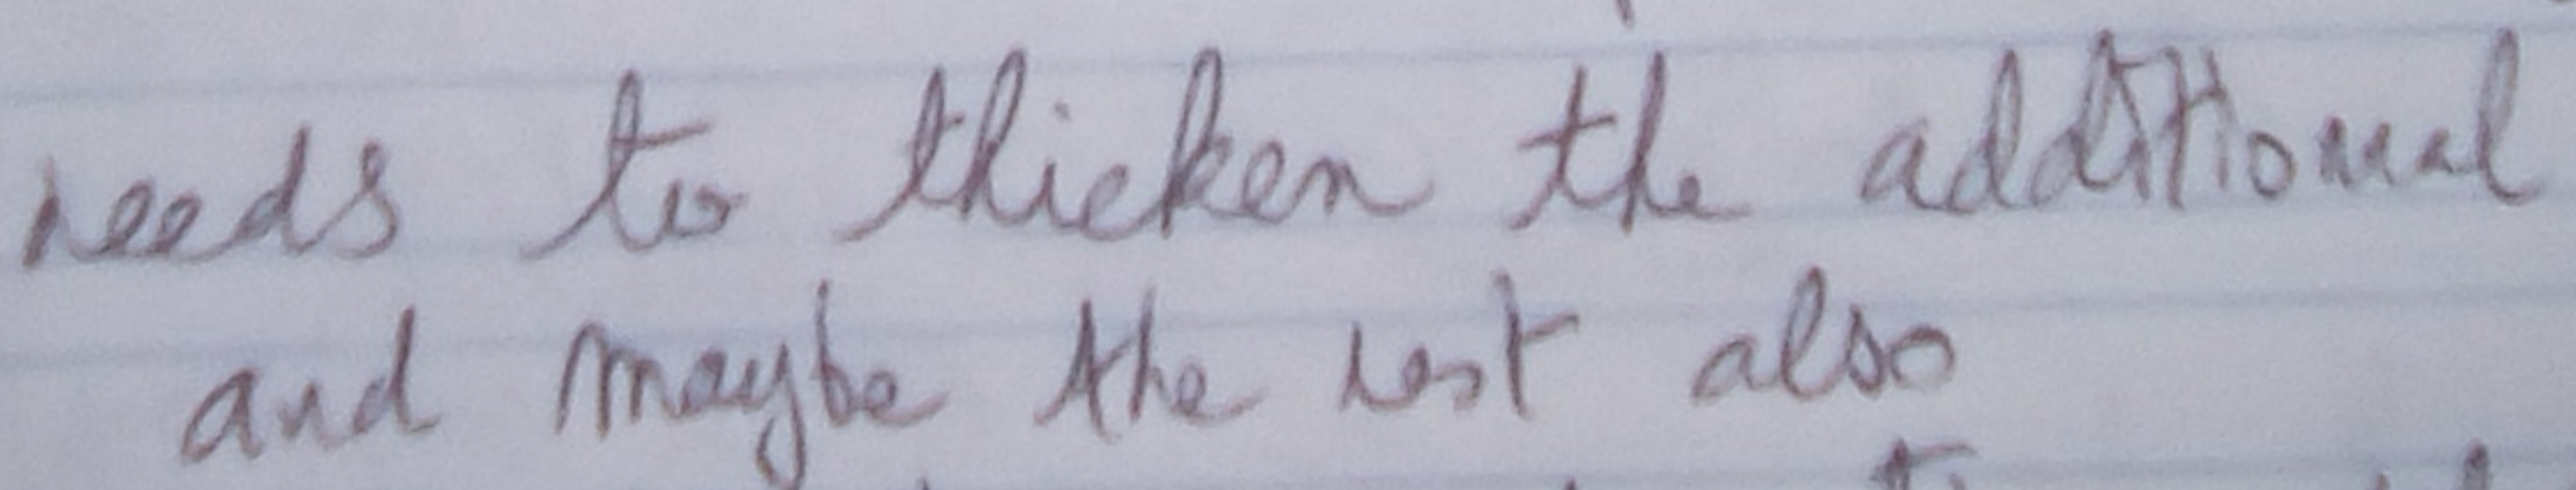 needs to thicken the additional
and maybe the rest also